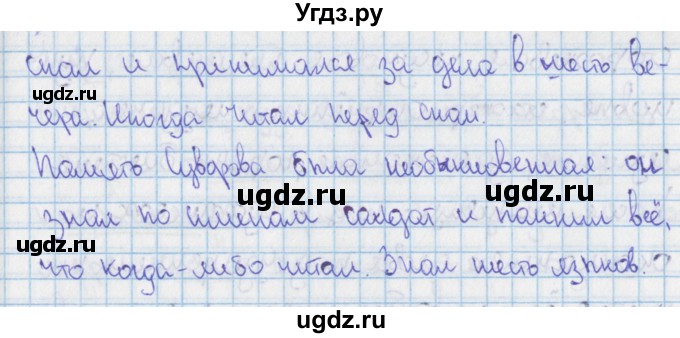 Угдз.ру
спал и принимался за дела в шесть ве-
чера. Иногда читал перед сном.
Память Суворова была необыкновенная: он
знал по именам солдат и помнил всё,
что когда-либо читал. Знал шесть языков.
ugdz.ru
ugdz.ru
ugdz.ru
ugdz.ru
ugdz.ru
ugdz.ru
ugdz.ru